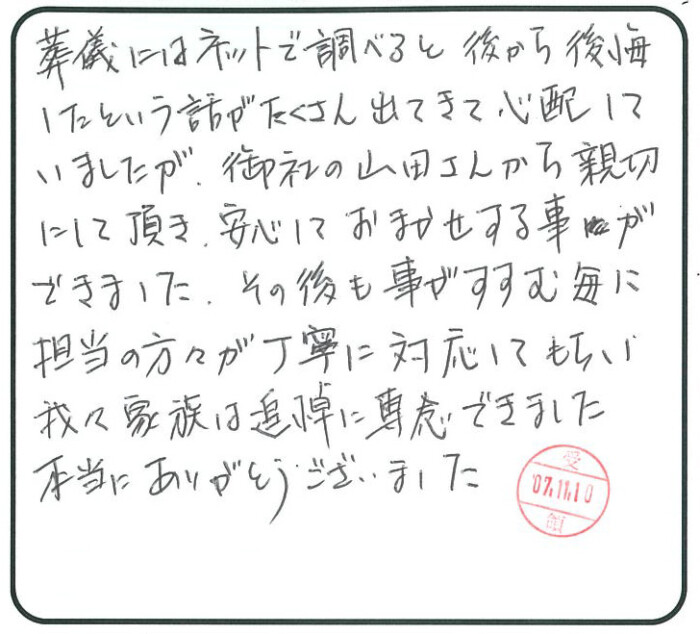 葬儀にはネットで調べると後から後悔
したという話がたくさん出てきて心配して
いましたが、御社の山田さんから親切
にして頂き、安心しておまかせする事が
できました、その後も事がすすむ毎に
担当の方々が丁寧に対応してもらい
我々家族は追悼に専念できました
本当にありがとうございました
受
'07.11.10
領